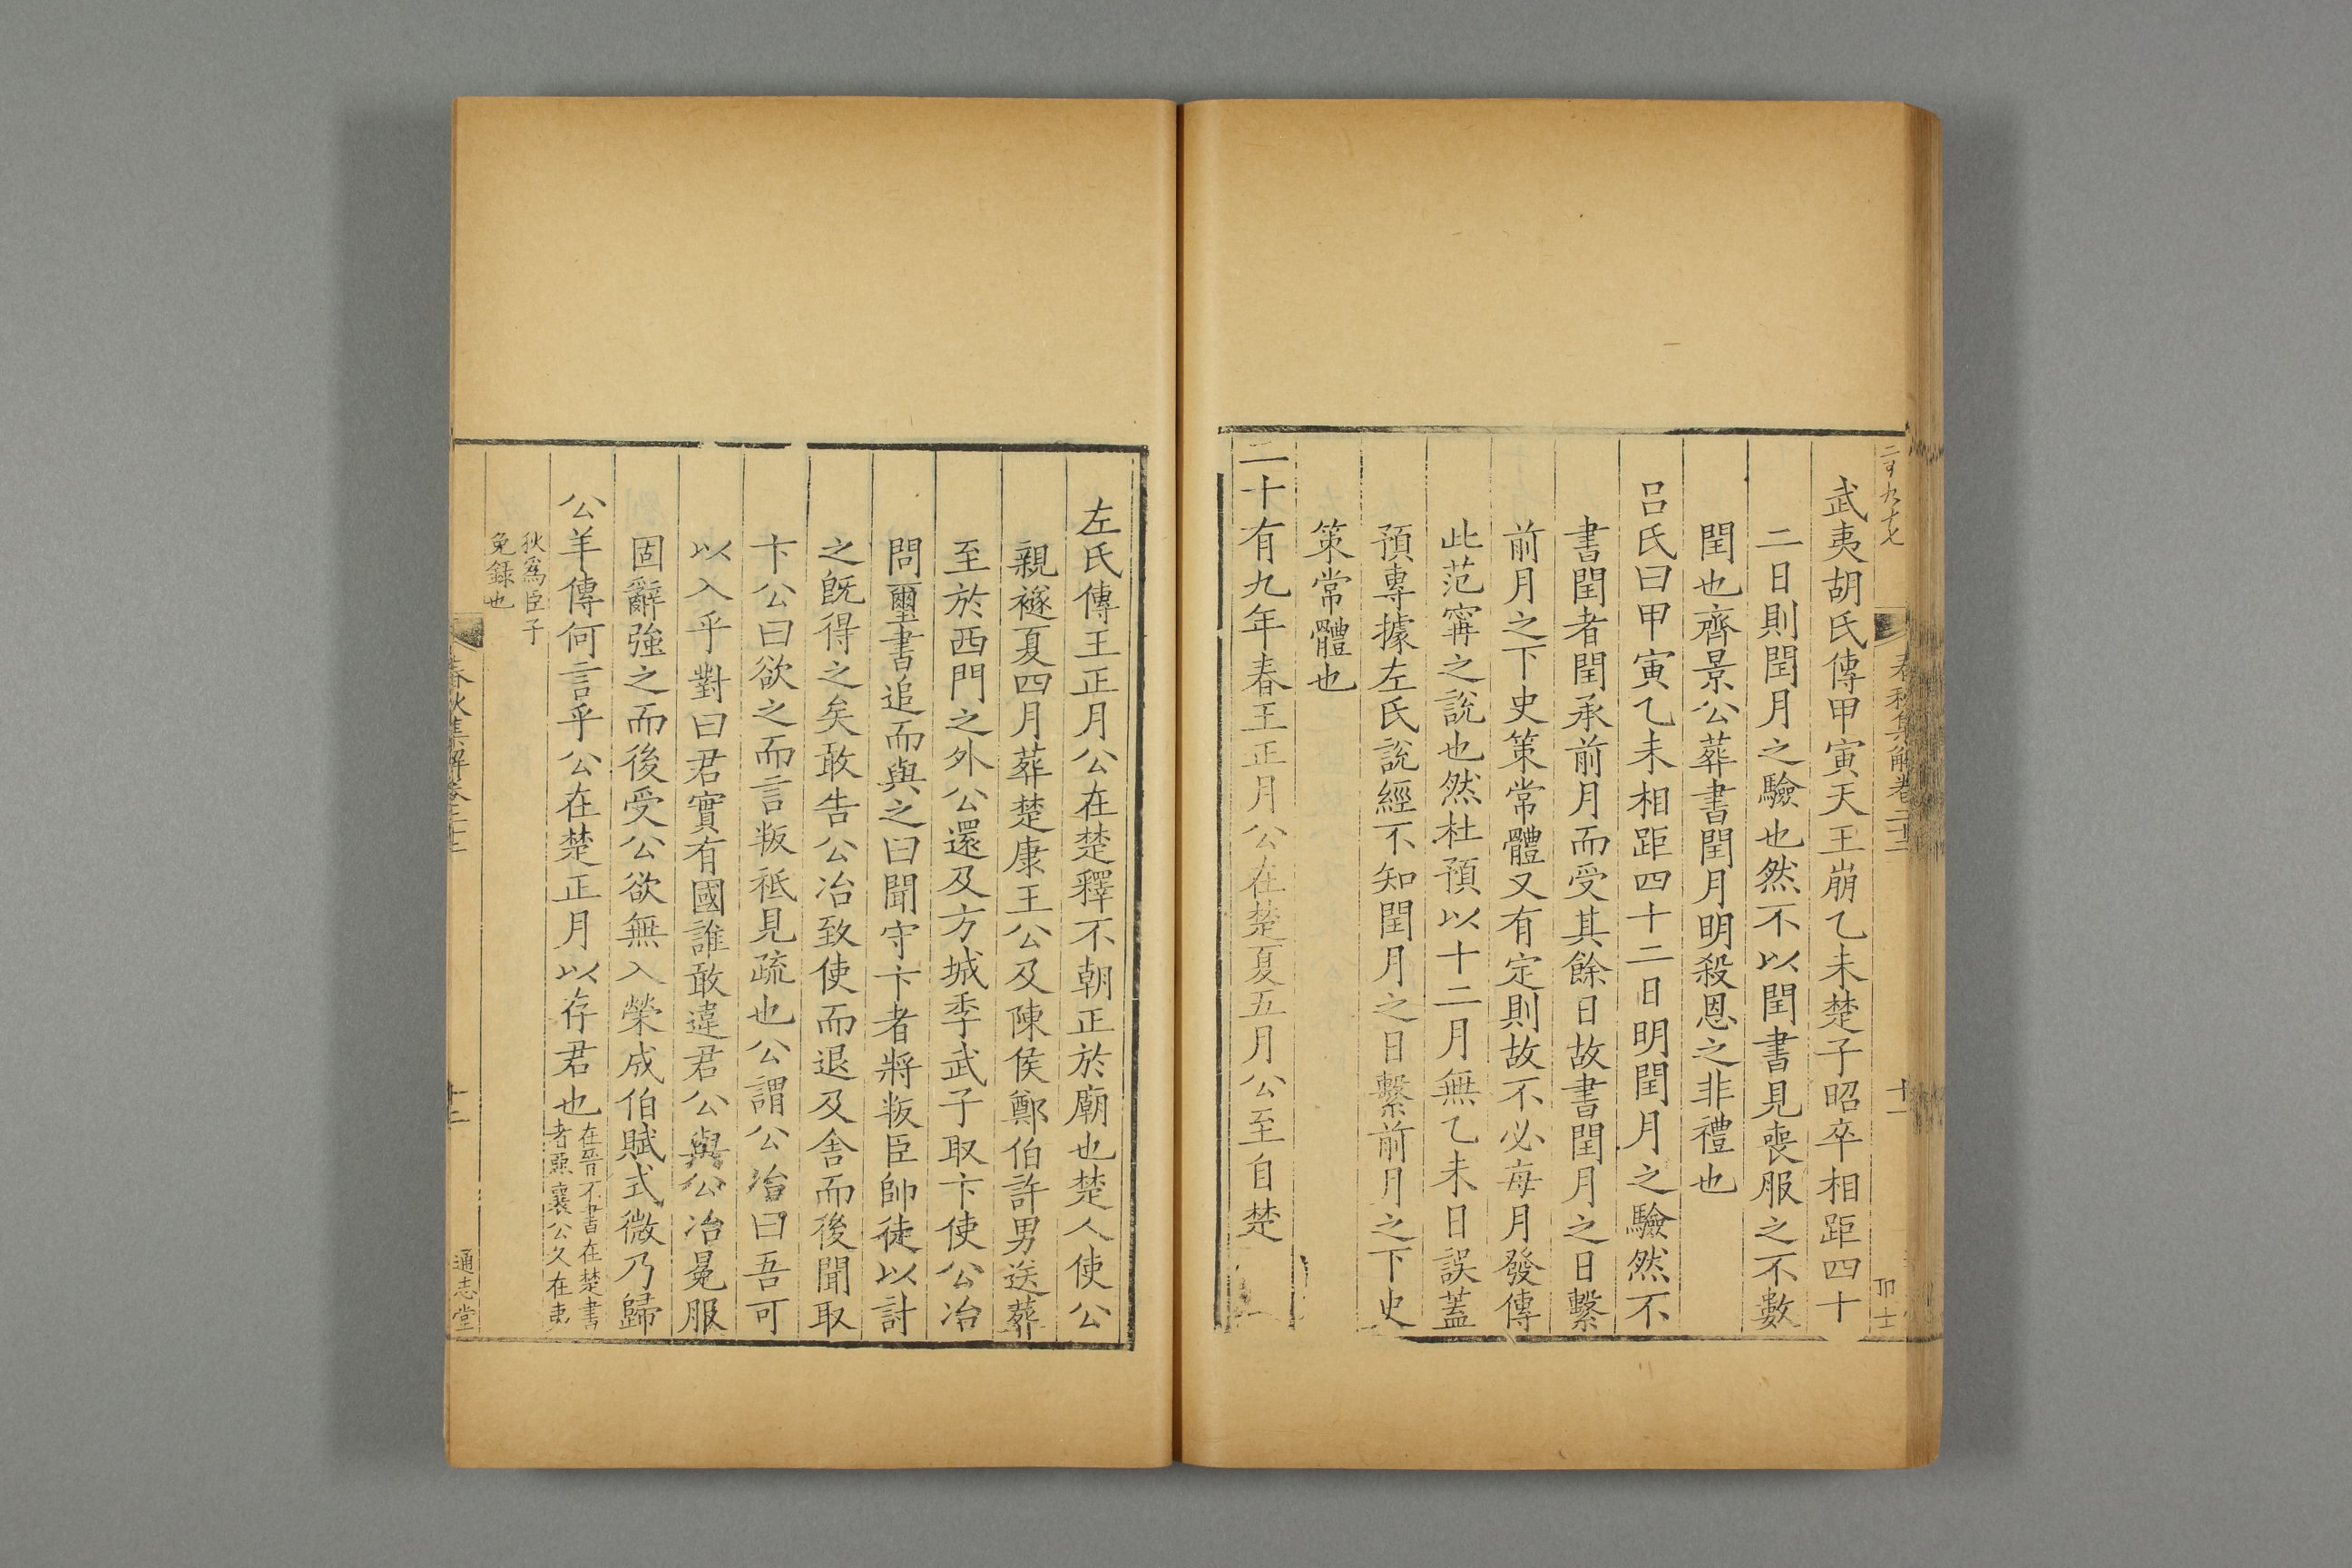 春秋集解卷二十二
十一
武夷胡氏傳甲寅天王崩乙未楚子昭卒相距四十
二日則閏月之驗也然不以閏書見喪服之不數
閏也齊景公葬書閏月明殺恩之非禮也
呂氏曰甲寅乙未相距四十二日明閏月之驗然不
書閏者閏承前月而受其餘日故書閏月之日繫
前月之下史策常體又有定則故不必每月發傳
此范甯之說也然杜預以十二月無乙未日誤蓋
預專據左氏說經不知閏月之日繫前月之下史
策常體也
二十有九年春王正月公在楚夏五月公至自楚
左氏傳王正月公在楚釋不朝正於廟也楚人使公
親襚夏四月葬楚康王公及陳侯鄭伯許男送葬
至於西門之外公還及方城季武子取卞使公冶
問璽書追而與之曰聞守卞者將叛臣帥徒以討
之旣得之矣敢告公冶致使而退及舍而後聞取
卞公曰欲之而言叛祗見疏也公謂公冶曰吾可
以入乎對曰君實有國誰敢違君公與公冶冕服
固辭強之而後受公欲無入榮成伯賦式微乃歸
公羊傳何言乎公在楚正月以存君也在晉不書在楚書
者惡襄公久在夷
狄爲臣子
免錄也
春秋集解卷二十二
十二
通志堂